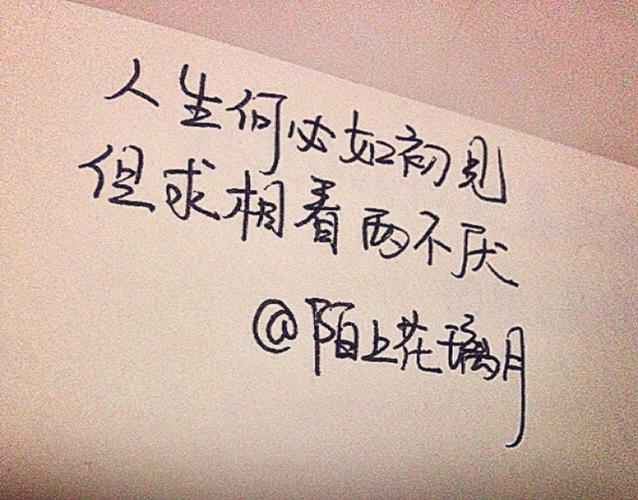 人生何必如初见
但求相看两不厌
@陌上花璃月